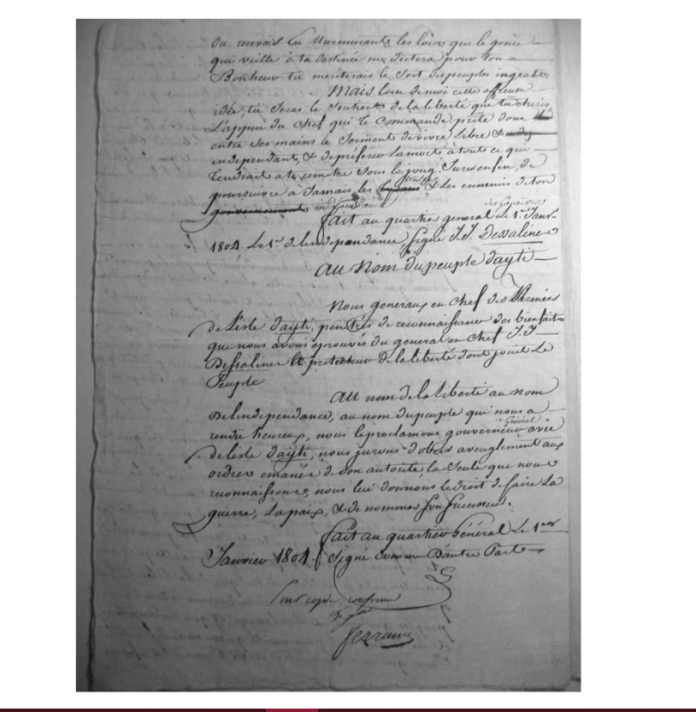 ou recevais en Murmurant les loix que le genie
qui veille à ta destinée me dictera pour ton
Bonheur tu meriterais le Sort des peuples ingrats,
Mais loin de moi cette affreuse
idée, tu Seras le Soutien de la liberté que tu cheris,
L'appui du Chef qui te Commande, prete donc
entre Ses mains le Serment de vivre Libre &
independant, & de préferer La mort à tout ce qui
tendrait à te remettre Sous le joug, Jures enfin, de
poursuivre à Jamais les & les ennemis de ton
independance
fait au quartier general des Gonaïves Le 1er Janvr
1804 Le 1er de l'independance, Signé J.J. Dessalines
Au Nom du peuple d'ayti
Nous generaux en Chef des Armées
de l'isle d'ayti, penétrés de reconnaissance des bienfaits
que nous avons eprouvés du general en Chef J.J
Dessalines Le protecteur de la liberté dont jouit Le
Peuple
Au nom de la liberté au nom
De l'independance, au nom du peuple qui nous a
rendu heureux, nous le proclamons gouverneur Général à vie
de l'isle d'ayti, nous jurons d'obeir aveuglement aux
ordres emanés de Son autorité la Seule que nous
reconnaissons, nous lui donnons le droit de faire La
guerre, La paix, & de nommer Son Successeur.
fait au quartier Général Le 1er
Janvier 1804 Signé comme D'autre Part
Pour copie conforme